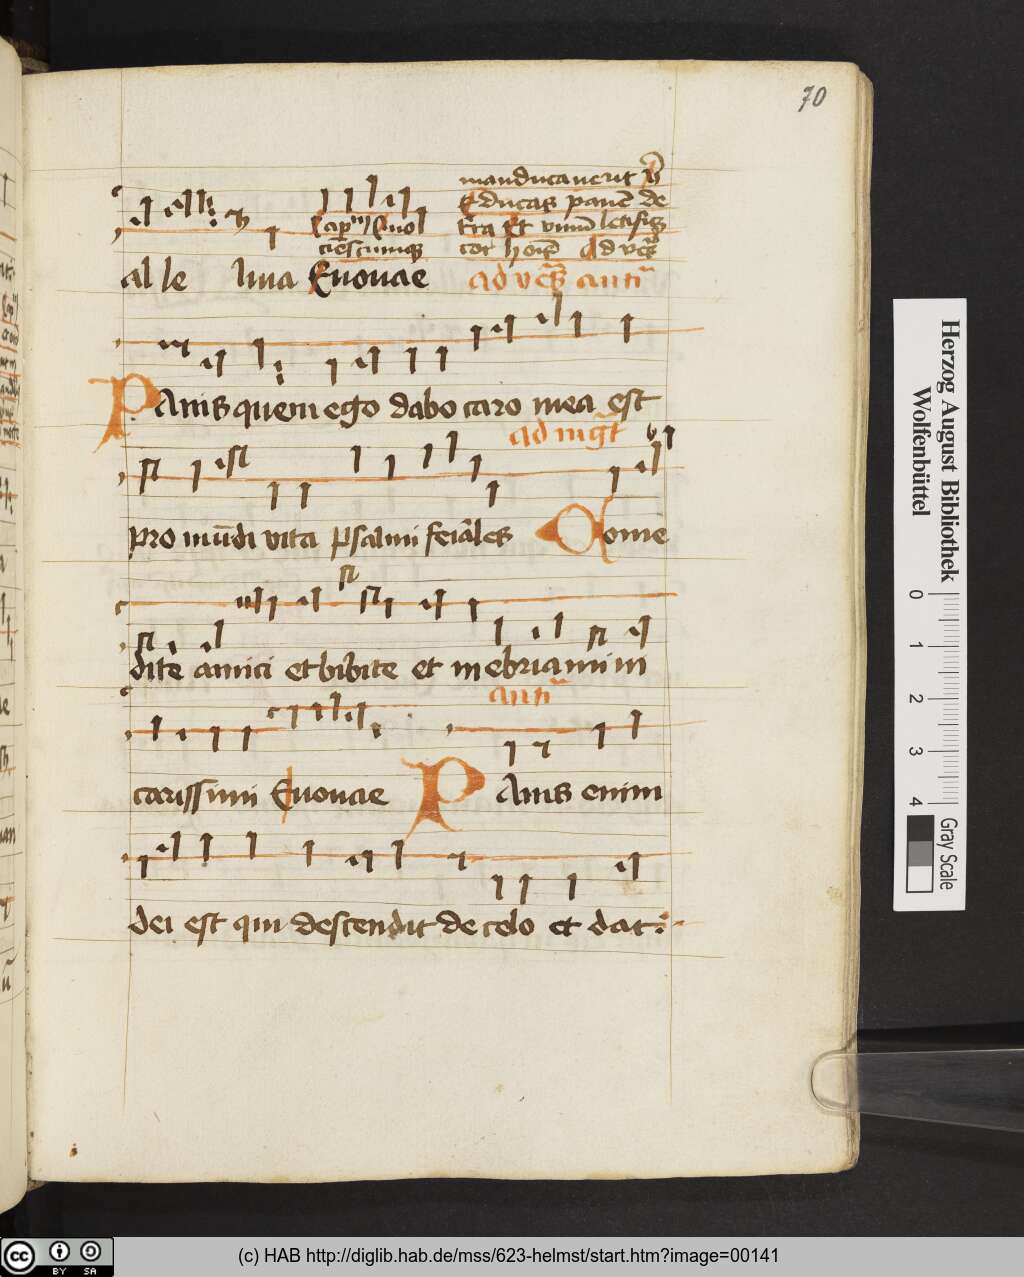 70
manducauerit
Educas panē de
Cap
Quo
tr̄a Et vinū letific̄
ciēscumq₃
cor hoīs Ad ves̄
al le luia Euouae ad ves̄ anti
PAnis quem ego dabo caro mea est
ad mḡt
pro mūdi vita psalmi feiāles Come
dite amici et bibite et inebriamini
anti
carissimi Euouae PAnis enim
dei est qui descendit de celo et dat
Herzog August Bibliothek
Wolfenbüttel
0 1 2 3 4
Gray Scale
cc BY SA
(c) HAB http://diglib.hab.de/mss/623-helmst/start.htm?image=00141